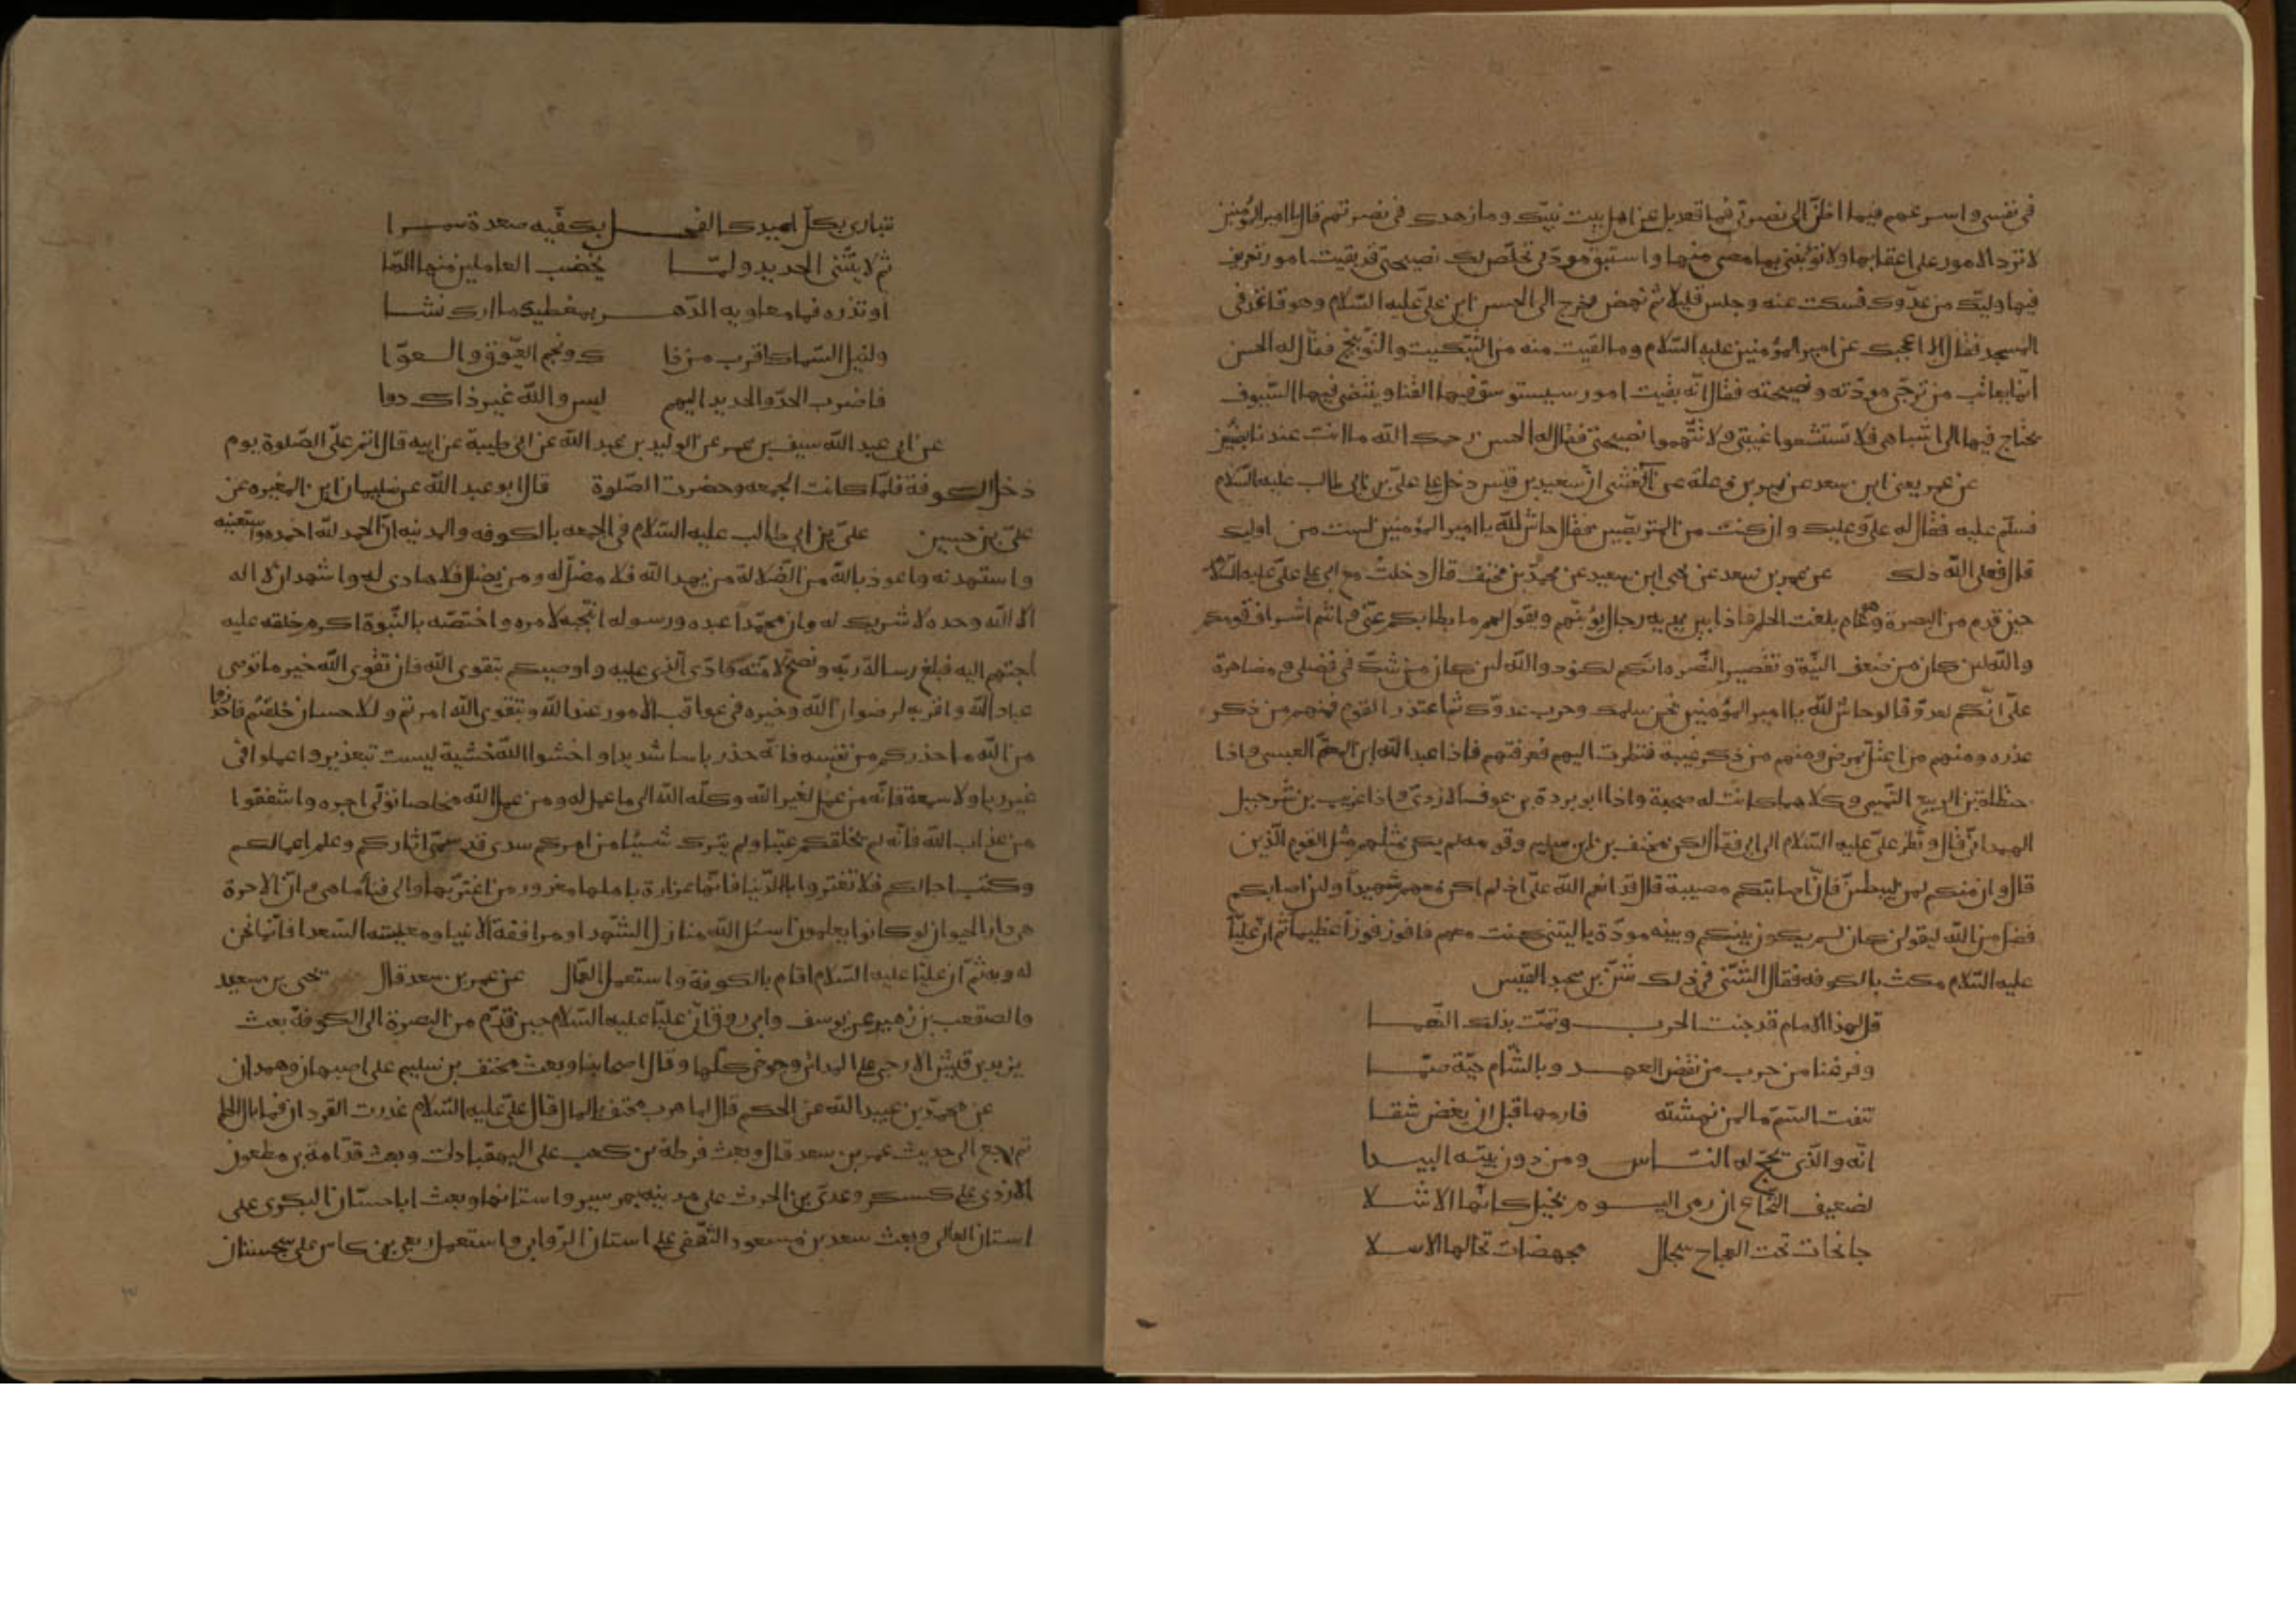 في نفسي واسرعهم فيما اظن الى نصرتي فما قعد بك عن اهل بيت نبيك وما زهدك في نصرتهم قال يا امير المؤمنين
لا تردّ الامور على اعقابها ولا تؤنبني بما مضى منها واستبق مودتي تخلص لك نصيحتي قد بقيت امور تعرف
فيها وليّك من عدوّك فسكت عنه وجلس قليلا ثم نهض فخرج الى الحسن ابن علي عليه السّلام وهو قاعد في
المسجد فقال الا اعجبك عن امير المؤمنين عليه السّلام وما لقيت منه من التّبكيت والتّوبيخ فقال له الحسن
انّما يعاتب من ترجّى مودّته ونصيحته فقال انّه بقيت امور سيستوسق فيها القنا وينتضى فيها السّيوف
يحتاج فيها الى اشباهي فلا تستشعوا غيبتي ولا تتّهموا نصيحتي فقال له الحسن رحمك الله ما انت عندنا بضنين
عن عمر يعني ابن سعد عن نمير بن وعلة عن الشعبي ان سعيد بن قيس دخل على عليّ بن ابي طالب عليه السلام
فسلّم عليه فقال له عليّ وعليك وان كنت من المتربّصين فقال حاش لله يا امير المؤمنين لست من اوليك
قال فعل الله ذلك عن عمر بن سعد عن يحيى ابن سعيد عن محمد بن مخنف قال دخلت مع ابي على عليّ عليه السلام
حين قدم من البصرة وهو عام بلغت الحلم فاذا بين يديه رجال يؤنّبهم ويقول لهم ما بطا بكم عنّي وانتم اشراف قومكم
والله لين كان من ضعف النيّة وتقصير البصر وانكم لكبود والله لين كان من شكّ في فضلي ومضاهرة
عليّ انّكم لعدوّ قالوا حاش لله يا امير المؤمنين نحن سلمك وحرب عدوّك ثم اعتذر القوم فمنهم من ذكر
عذره ومنهم من اعتلّ بمرض ومنهم من ذكر غيبة فنظرت اليهم فعرفتهم فاذا عبد الله ابن المعتم العبسي واذا
حنظلة بن الربيع التّميمي وكلاهما كانت له صحبة واذا ابو بردة بن عوف الازدي واذا غريب بن شرحبيل
الهمداني قال ونظر عليّ عليه السّلام الى ابي فقال لكن مخنف بن سليم وقومه لم يكن مثلهم مثل القوم الّذين
قال وان منكم لمن ليبطئنّ فان اصابتكم مصيبة قال قد انعم الله عليّ اذ لم اكن معهم شهيدا ولين اصابكم
فضل من الله ليقولن كان لم يكون بينكم وبينه مودّة يا ليتني كنت معهم فافوز فوزا عظيما ثم ان عليّا
عليه السّلام مكث بالكوفه فقال الشّنّي في ذلك شنّ بن عبد القيس
قل لهذا الامام قد خبت الحرب وتمّت بذلك النّعما
وفرغنا من حرب من نقض العهد وبالشّام حيّة صمّا
تنفث السّمّ ما لمن نهشته فارمها قبل ان يغض شفا
انّه والّذي يحجّ له النّاس ومن دون بيته البيدا
لضعيف النّخاع ان رمي اليوم بخيل كانّها الاشلا
جانحات تحت العجاج سجال مجهضات تخالها الاسلا
تبارى بكلّ اصيد كالفحل بكفّيه صعدة سمرا
ثم لا ينثني الحديد ولمّا يخضب العاملين منها الدّما
او تذره فما معاويه الدّهر بمعطيك ما اراك تشا
ولنيل السّماك اقرب من ذاك ونجم العيّوق والعوّا
فاضرب الحدّ والحديد اليهم ليس والله غير ذاك دوا
عن ابي عبد الله سيف بن عمر عن الوليد بن عبد الله عن ابي طيبة عن ابيه قال اتم عليّ الصّلوة يوم
دخل الكوفة فلمّا كانت الجمعه وحضرت الصّلوة قال ابو عبد الله عن سليمان ابن المغيره عن
عليّ بن حسين عليّ بن ابي طالب عليه السّلام في الجمعه بالكوفه والمدينه ان الحمد لله احمده واستعينه
واستهدنه واعوذ بالله من الضّلالة من يهد الله فلا مضلّ له ومن يضلل فلا هادي له واشهد ان لا اله
الا الله وحده لا شريك له وان محمّدا عبده ورسوله انتجبه لامره واختصّه بالنّبوّة اكرم خلقه عليه
احبّهم اليه فبلغ رسالة ربّه ونصح لامّته وادّى الّذي عليه واوصيكم بتقوى الله فان تقوى الله خير ما تواصى
عباد الله واقربه لرضوان الله وخيره في عواقب الامور عند الله وبتقوى الله امرتم وللاحسان خلقتم فاحذروا
من الله ما حذركم من نفسه فانّه حذر باسا شديدا واخشوا الله خشية ليست بتعذير واعملوا في
غير ريا ولا سمعة فانّه من عمل لغير الله وكله الله الى ما عمل له ومن عمل لله مخلصا تولّى اجره واشفقوا
من عذاب الله فانّه لم يخلقكم عبثا ولم يترك شيئا من امركم سدى قد سمّى اثاركم وعلم اعمالكم
وكتب اجالكم فلا تغتروا بالدّنيا فانّها غرارة باهلها مغرور من اغترّ بها والى فنا ما هي وان الاخرة
هي دار الحيوان لو كانوا يعلمون اسئل الله منازل الشّهدا ومرافقة الانبيا ومعيشه السّعدا فانّما نحن
له وبه ثمّ ان عليّا عليه السّلام اقام بالكوفة واستعمل العمّال عن عمر بن سعد قال يحيى بن سعيد
والصقعب بن زهير عن يوسف وابي روق ان عليّا عليه السّلام حين قدم من البصرة الى الكوفة بعث
يزيد بن قيس الارحبي على المدائن وجوخى كلّها وقال اصحابنا وبعث مخنف بن سليم على اصبهان وهمدان
عن محمد بن عبيد الله عن الحكم قال لما هرب مخنف بالمال قال عليّ عليه السّلام عذرت القردان فما بال الحلم
ثم رجع الى حديث عمر بن سعد قال وبعث قرظة بن كعب على البهقباذات وبعث قدامة بن مظعون
الازدي على كسكر وعدي بن الحرث على مدينه بهرسير واستانها وبعث ابا حسّان البكري على
استان العالي وبعث سعد بن مسعود الثّقفي على استان الزّوابي واستعمل ربعي بن كاس على سجستان